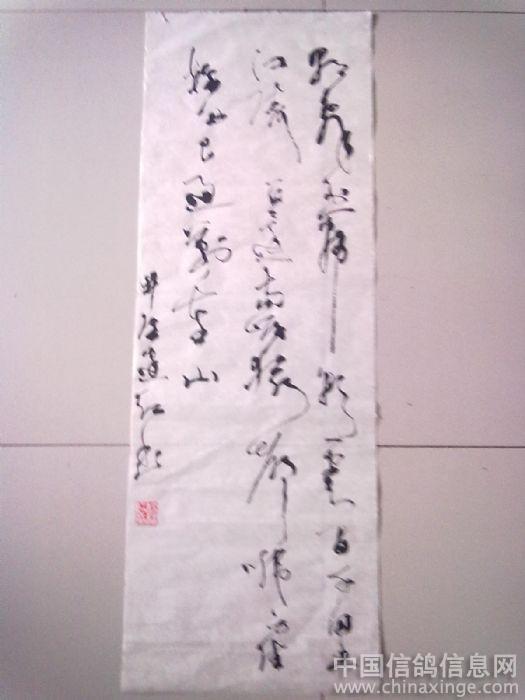 朝辞白帝彩雲間千里
江陵一日還两岸猿聲啼不住
輕舟已過萬重山
中国信鸽信息网
www.chinaxinge.com